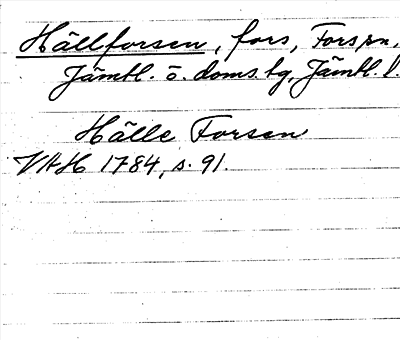 Hällforsen, fors, Fors sn,
Jämtl. ö. doms.bg, Jämtl. l.
Hälle Forsen
VAH 1784, s. 91.